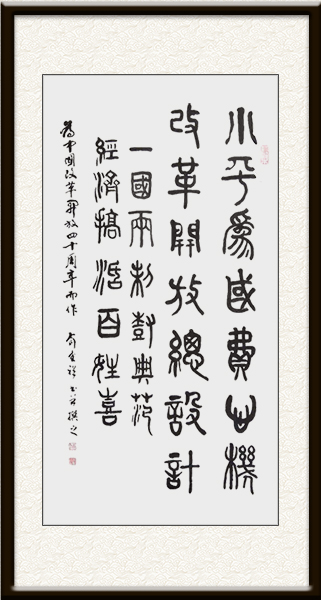 小平為國費心機
改革開放總設計
一國兩制對典范
經濟搞活百姓喜
為中國改革開放四十周年而作